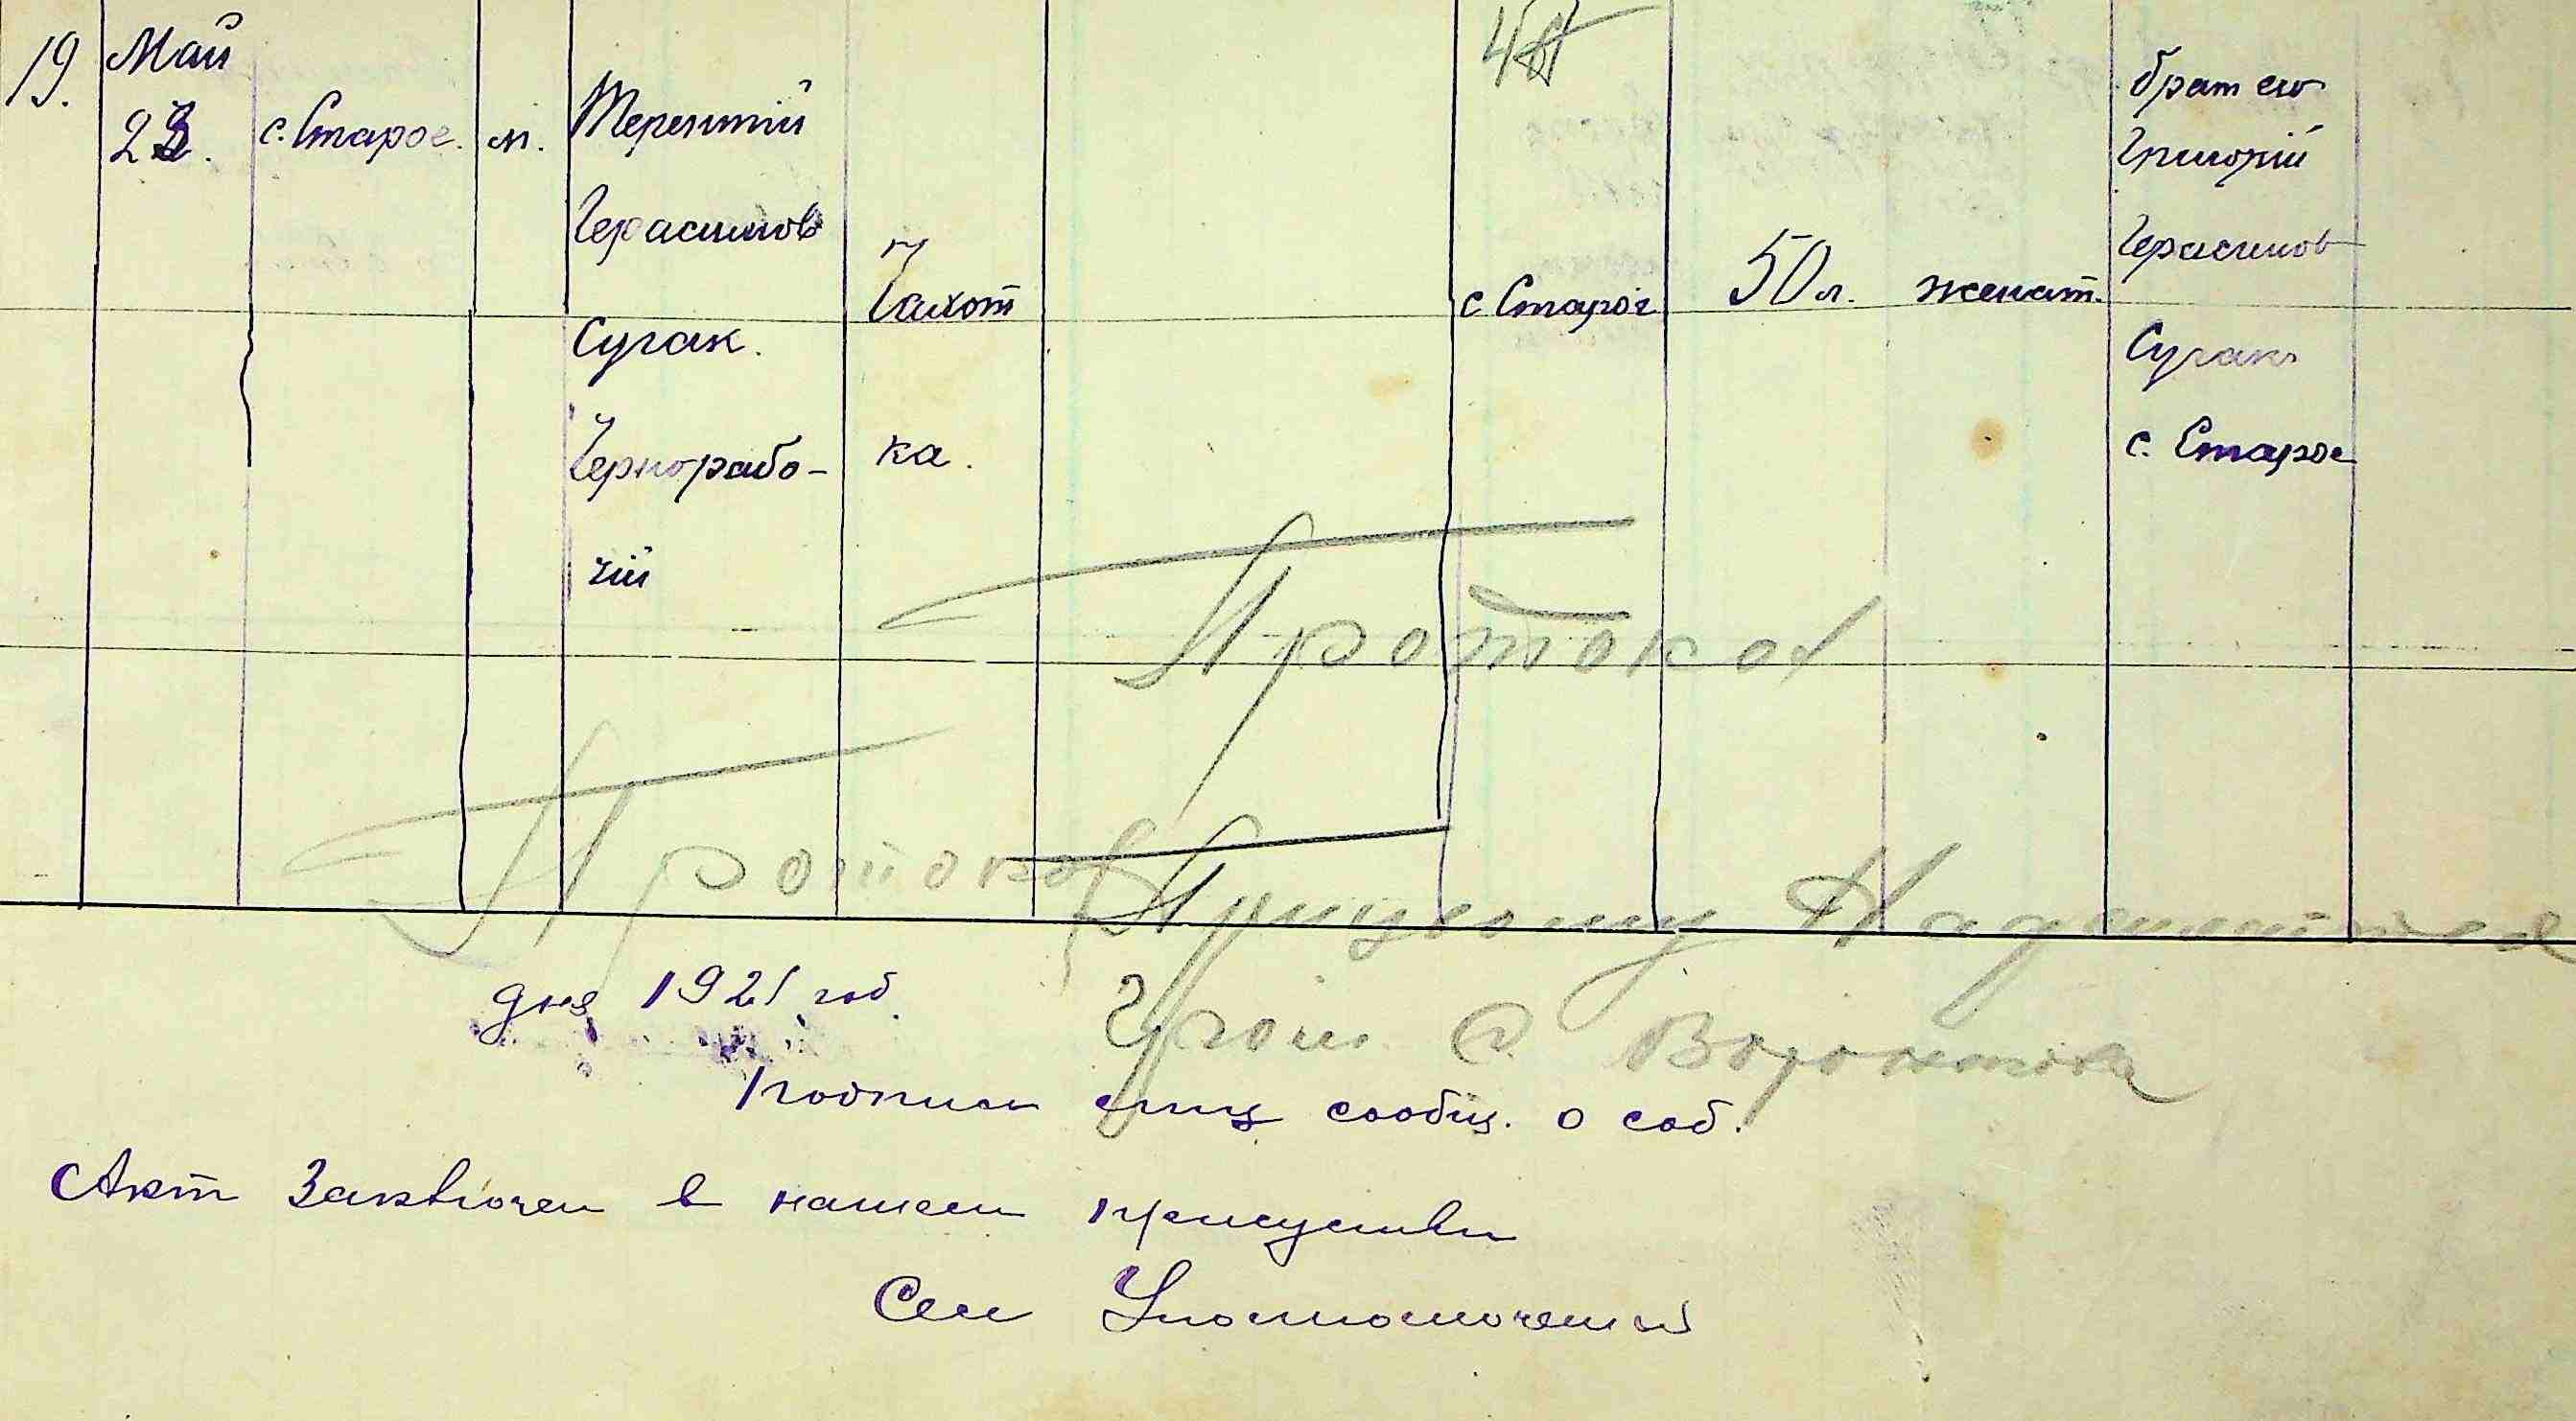 19. Май 23. с. Старое. м. Терентій Герасимов Сугак. Чернорабо-
чій
Чахот
ка.
с Старое 50 л. женат.
брат его
Григорій
Герасимов
Сугак
с. Старое
Протокол
Протокол
дня 1921 год.
Подписи лиц сообщ. о соб.
Акт Заключен в нашем присуствіи
Сел Уполномоченый